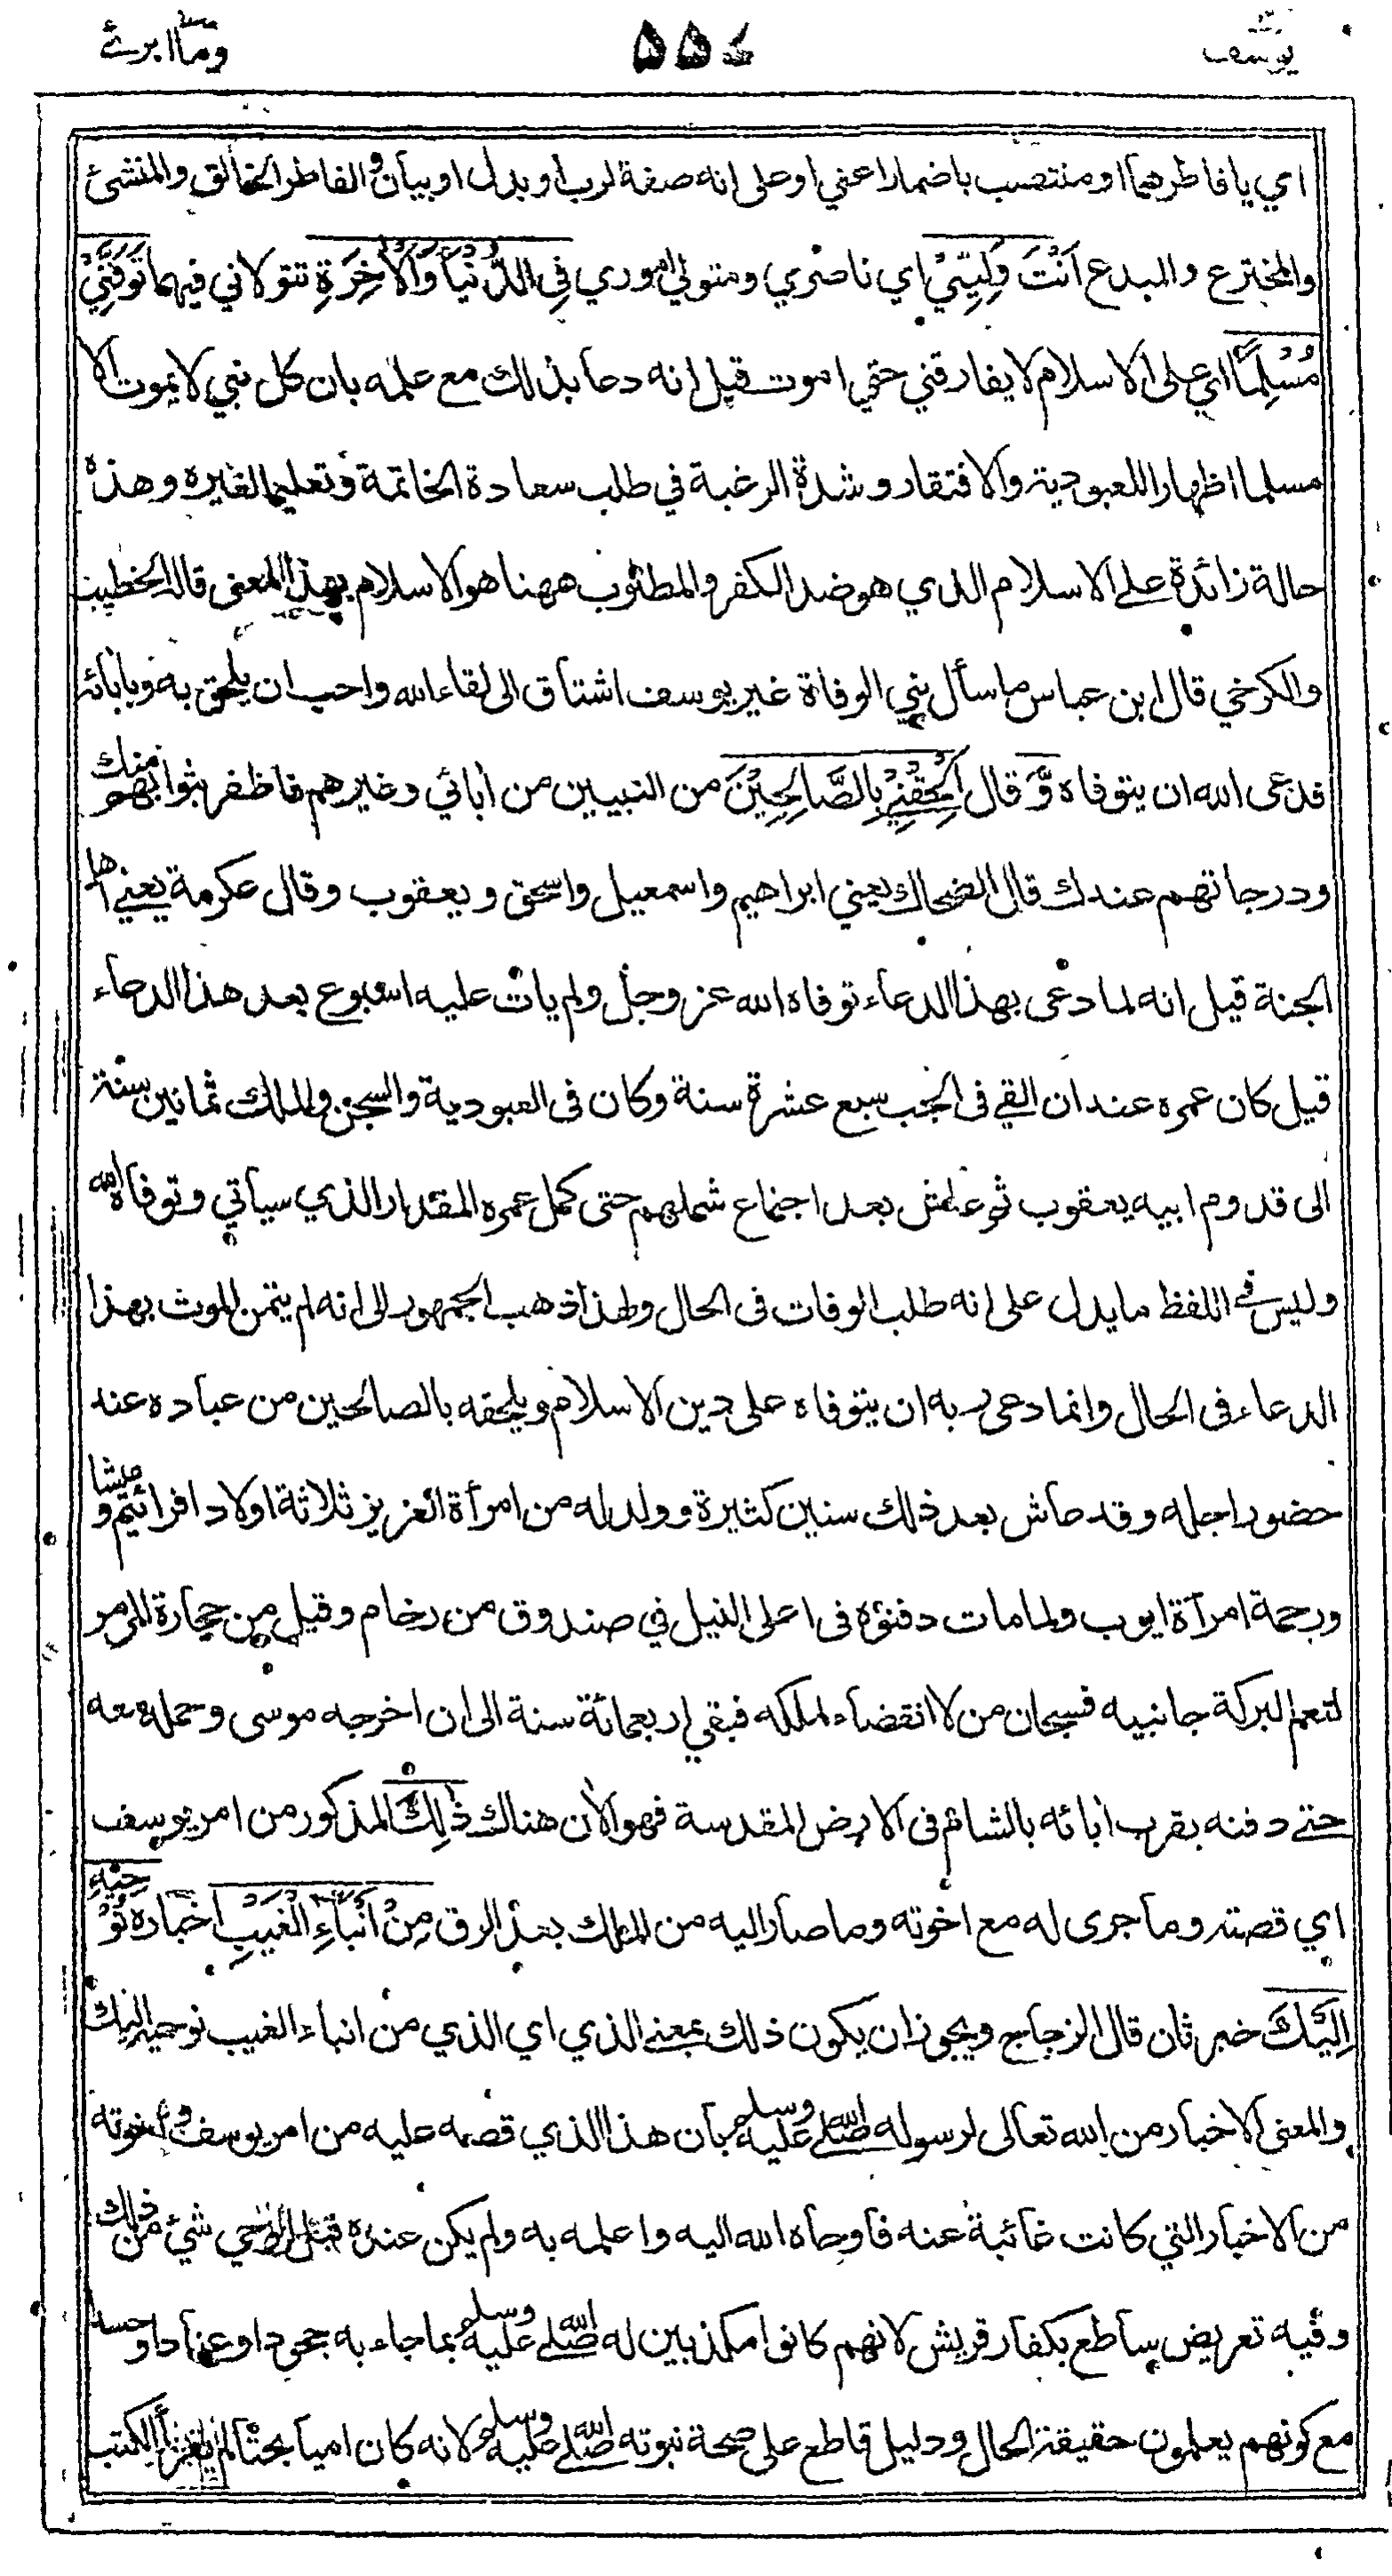 يوسف ٥٥٤ وما ابرئ
اي يا فاطرهما او منتصب باضمار اعني او على انه صفة لرب او بدل او بيان و الفاطر الخالق والمنشئ
والمخترع والمبدع اَنْتَ وَلِيّيْ اي ناصري ومتولي اموري فِي الدُّنْيَا وَالْاٰخِرَةِ تتولاني فيهما تَوَفَّنِيْ
مُسْلِمًا اي على الاسلام لا يفارقني حتى اموت قيل انه دعا بذلك مع علمه بان كل نبي لا يموت الا
مسلما اظهارا للعبودية والافتقار وشدة الرغبة في طلب سعادة الخاتمة وتعليما لغيره وهذه
حالة زائدة على الاسلام الذي هو ضد الكفر والمطلوب ههنا هو الاسلام بهذا المعنى قاله الخطيب
والكرخي قال ابن عباس ما سأل نبي الوفاة غير يوسف اشتاق الى لقاء الله واحب ان يلحق به وبابائه
فدعى الله ان يتوفاه وَّ قال اَلْحِقْنِيْ بِالصَّالِحِيْنَ من النبيين من اٰبائي وغيرهم فاظفر بثوابهم منك
ودرجاتهم عندك قال الضحاك يعني ابراهيم واسمعيل واسحق ويعقوب وقال عكرمة يعني اهل
الجنة قيل انه لما دعى بهذا الدعاء توفاه الله عز وجل ولم يأت عليه اسبوع بعد هذا الدعاء
قيل كان عمره عند ان القي فى الجب سبع عشرة سنة وكان فى العبودية والسجن والملك ثمانين سنة
الى قدوم ابيه يعقوب ثم عاش بعد اجتماع شملهم حتى كمل عمره المقدار الذي سيأتي وتوفاه الله
وليس في اللفظ ما يدل على انه طلب الوفات فى الحال ولهذا ذهب الجمهور الى انه لم يتمن الموت بهذا
الدعاء فى الحال وانما دعى ربه ان يتوفاه على دين الاسلام ويلحقه بالصالحين من عباده عند
حضور اجله وقد عاش بعد ذلك سنين كثيرة وولد له من امرأة العزيز ثلاثة اولاد افرائيم و ميشا
ورحمة امرأة ايوب ولما مات دفنوه فى اعلى النيل في صندوق من رخام وقيل من حجارة المرمر
لتعم البركة جانبيه فسبحان من لا انقضاء لملكه فبقي اربعمائة سنة الى ان اخرجه موسى وحمله معه
حتى دفنه بقرب اٰبائه بالشام فى الارض المقدسة فهو الاٰن هناك ذٰلِكَ المذكور من امر يوسف
اي قصته وما جرى له مع اخوته وما صار اليه من الملك بعد الرق مِنْ اَنْبَآءِ الْغَيْبِ اخباره نُوْحِيْهِ
اِلَيْكَ خبر ثان قال الزجاج ويجوز ان يكون ذلك بمعنى الذي اي الذي من انباء الغيب نوحيه اليك
والمعنى الاخبار من الله تعالى لرسوله صلى الله عليه وسلم بان هذا الذي قصه عليه من امر يوسف و اخوته
من الاخبار التي كانت غائبة عنه فاوحاه الله اليه واعلمه به ولم يكن عنده قبل الوحي شئ من ذلك
وفيه تعريض ساطع بكفار قريش لانهم كانوا مكذبين له صلى الله عليه وسلم بما جاء به جحودا وعنادا و حسدا
مع كونهم يعلمون حقيقة الحال ودليل قاطع على صحة نبوته صلى الله عليه وسلم لانه كان اميا بحتا لم يقرأ الكتب